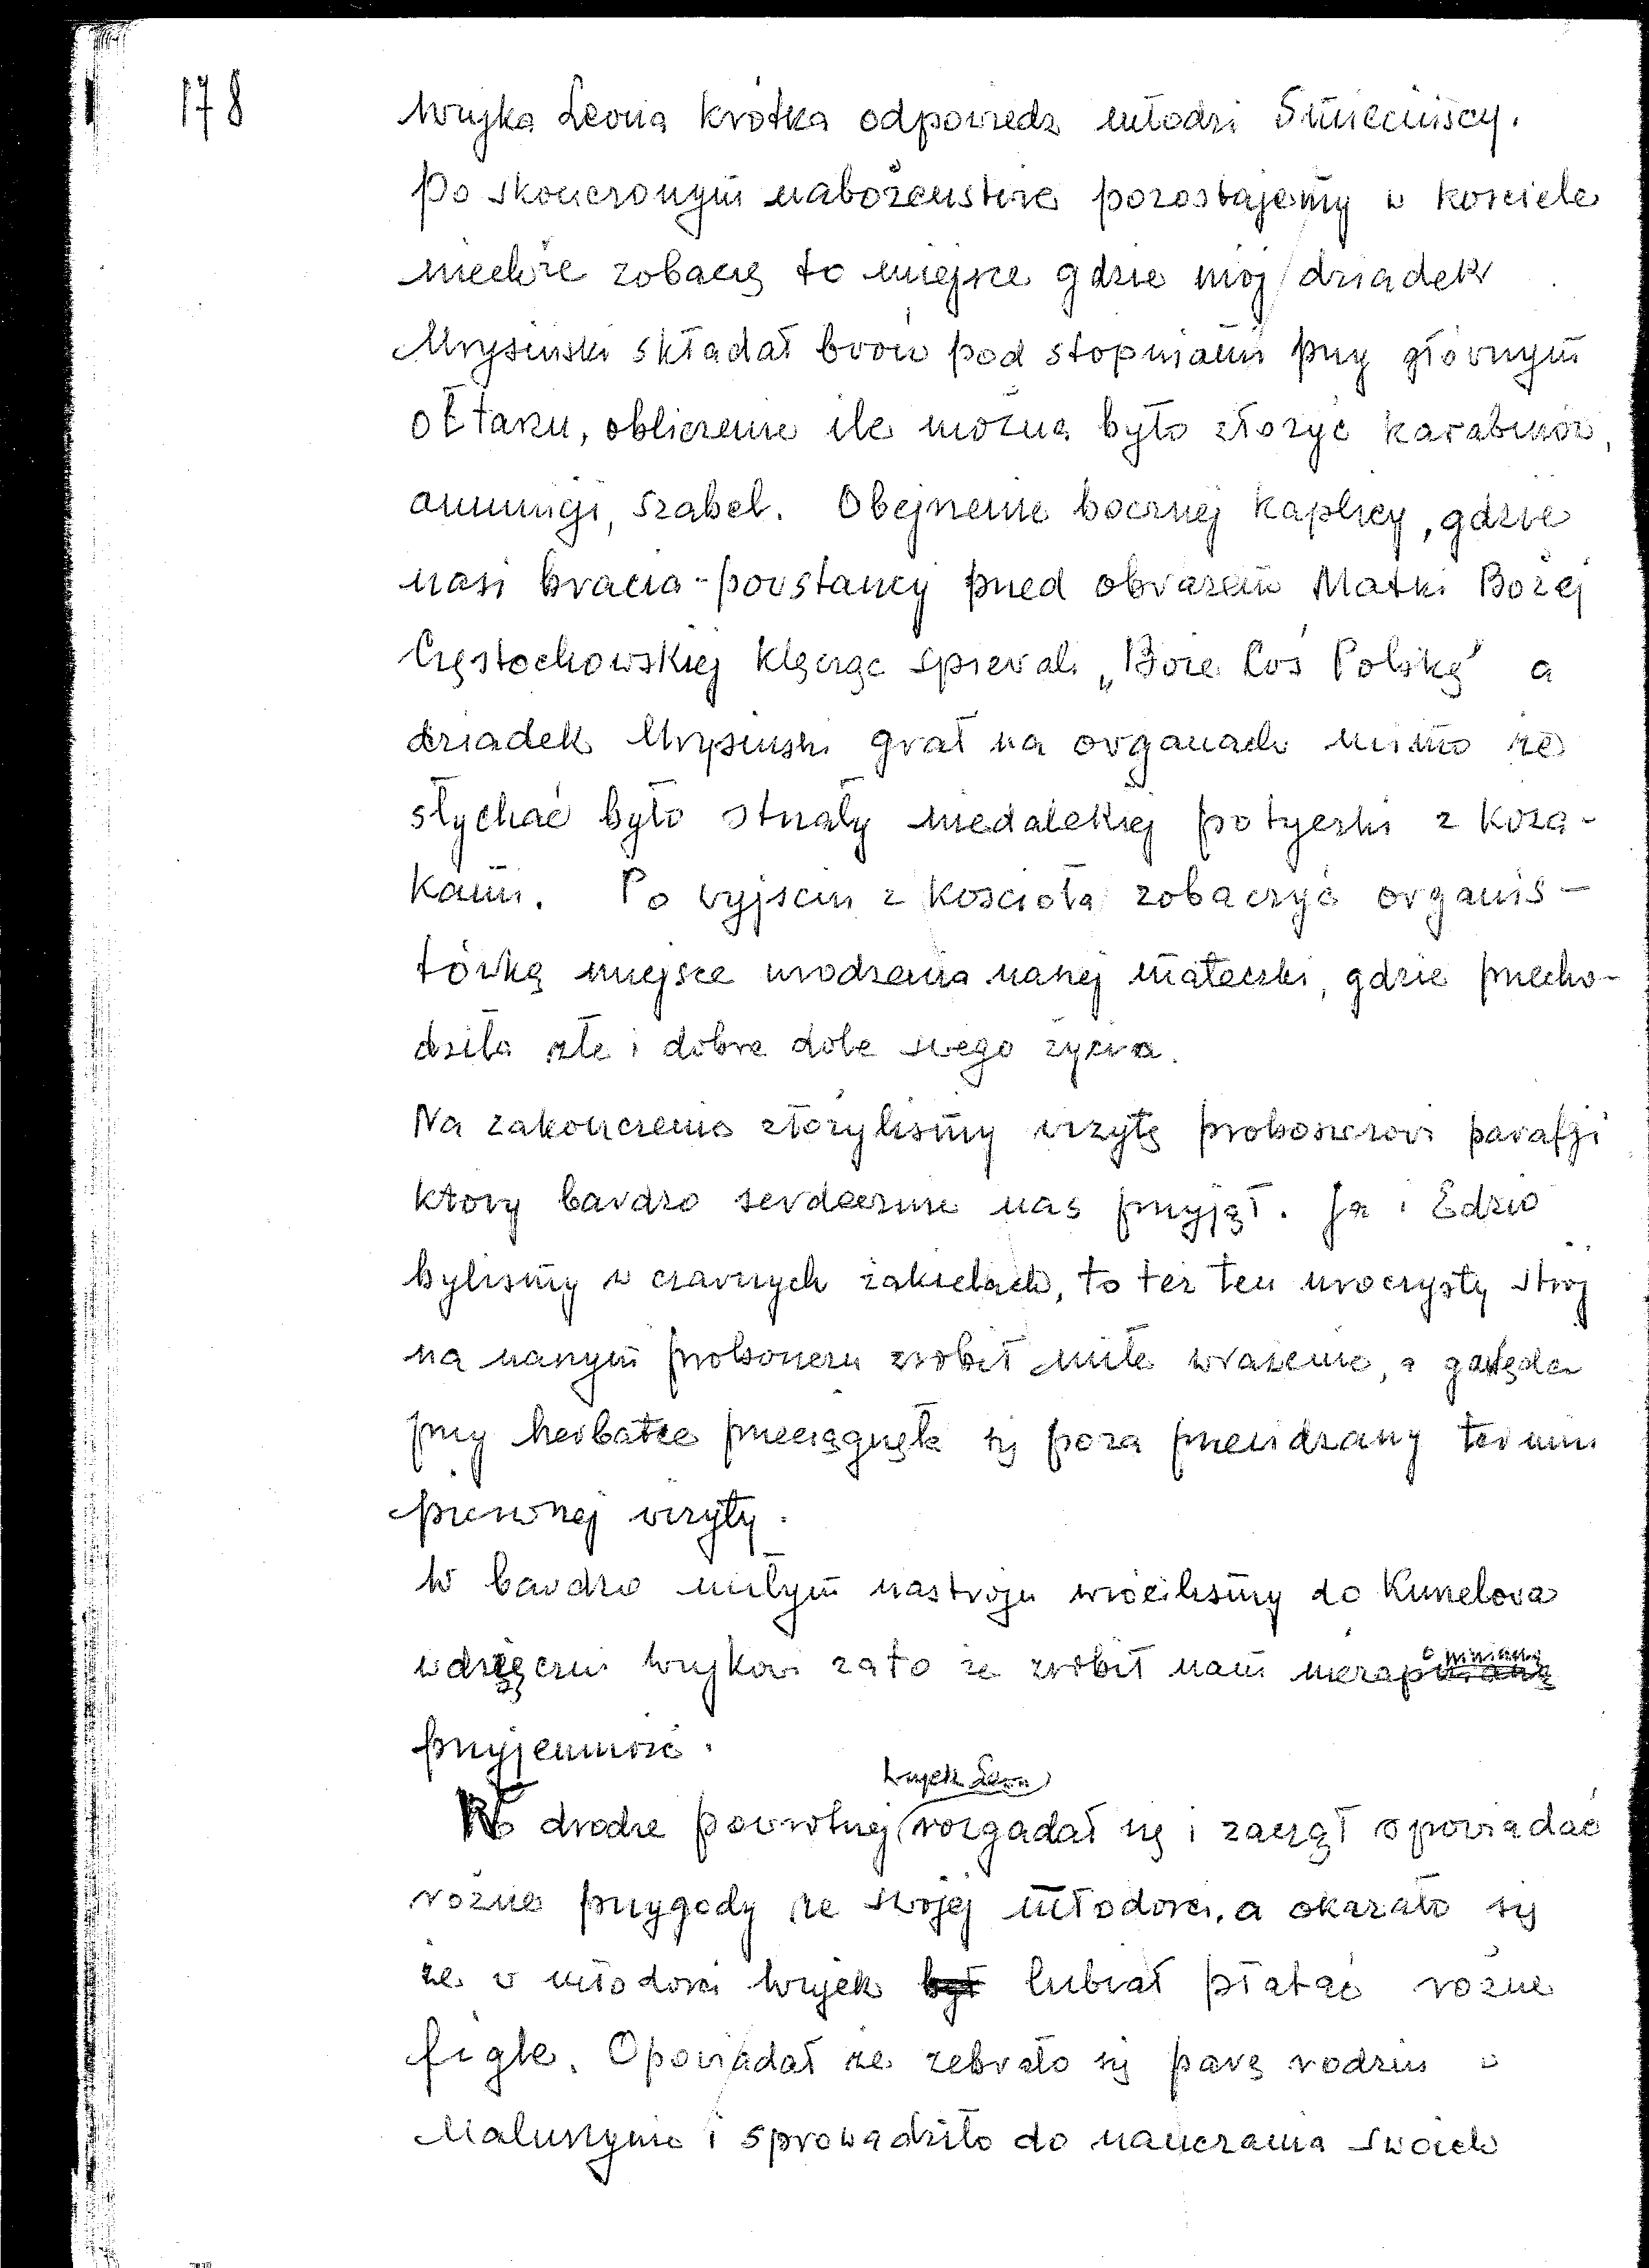 178
Wujka Leona krótka odpowiedz młodzi Śmiecińscy.
Po skończonym nabożeństwie pozostajemy w kościele
niechże zobaczę to miejsce gdzie mój dziadek
Mrysiński składał broń pod stopniami przy głównym
ołtarzu, obliczenie ile można było złożyć karabinów,
amunicji, szabel. Obejrzenie bocznej kaplicy, gdzie
nasi bracia-powstańcy przed obrazem Matki Bożej
Częstochowskiej klęcząc śpiewali „Boże Coś Polskę" a
dziadek Mrysiński grał na organach mimo że
słychać było strzały niedalekiej potyczki z koza-
kami. Po wyjściu z kościoła zobaczyć organis-
tówkę miejsce urodzenia naszej mateczki, gdzie przecho-
dziła złe i dobre dole swego życia.
Na zakończenie złożyliśmy wizytę proboszczowi parafji
który bardzo serdecznie nas przyjął. Ja i Edzio
byliśmy w czarnych żakietach, to też ten uroczysty strój
na naszym proboszczu zrobił miłe wrażenie, a gawęda
przy herbatce przeciągnęła się poza przewidziany termin
pierwszej wizyty.
W bardzo miłym nastroju wróciliśmy do Kunelowa
wdzięczni wujkowi za to że zrobił nam niezapomnianą
przyjemność.
W drodze powrotnej wujek Leon rozgadał się i zaczął opowiadać
różne przygody ze swojej młodości, a okazało się
że w młodości wujek był lubiał płatać różne
figle. Opowiadał że zebrało się parę rodzin w
Maluszynie i sprowadziło do nauczania swoich